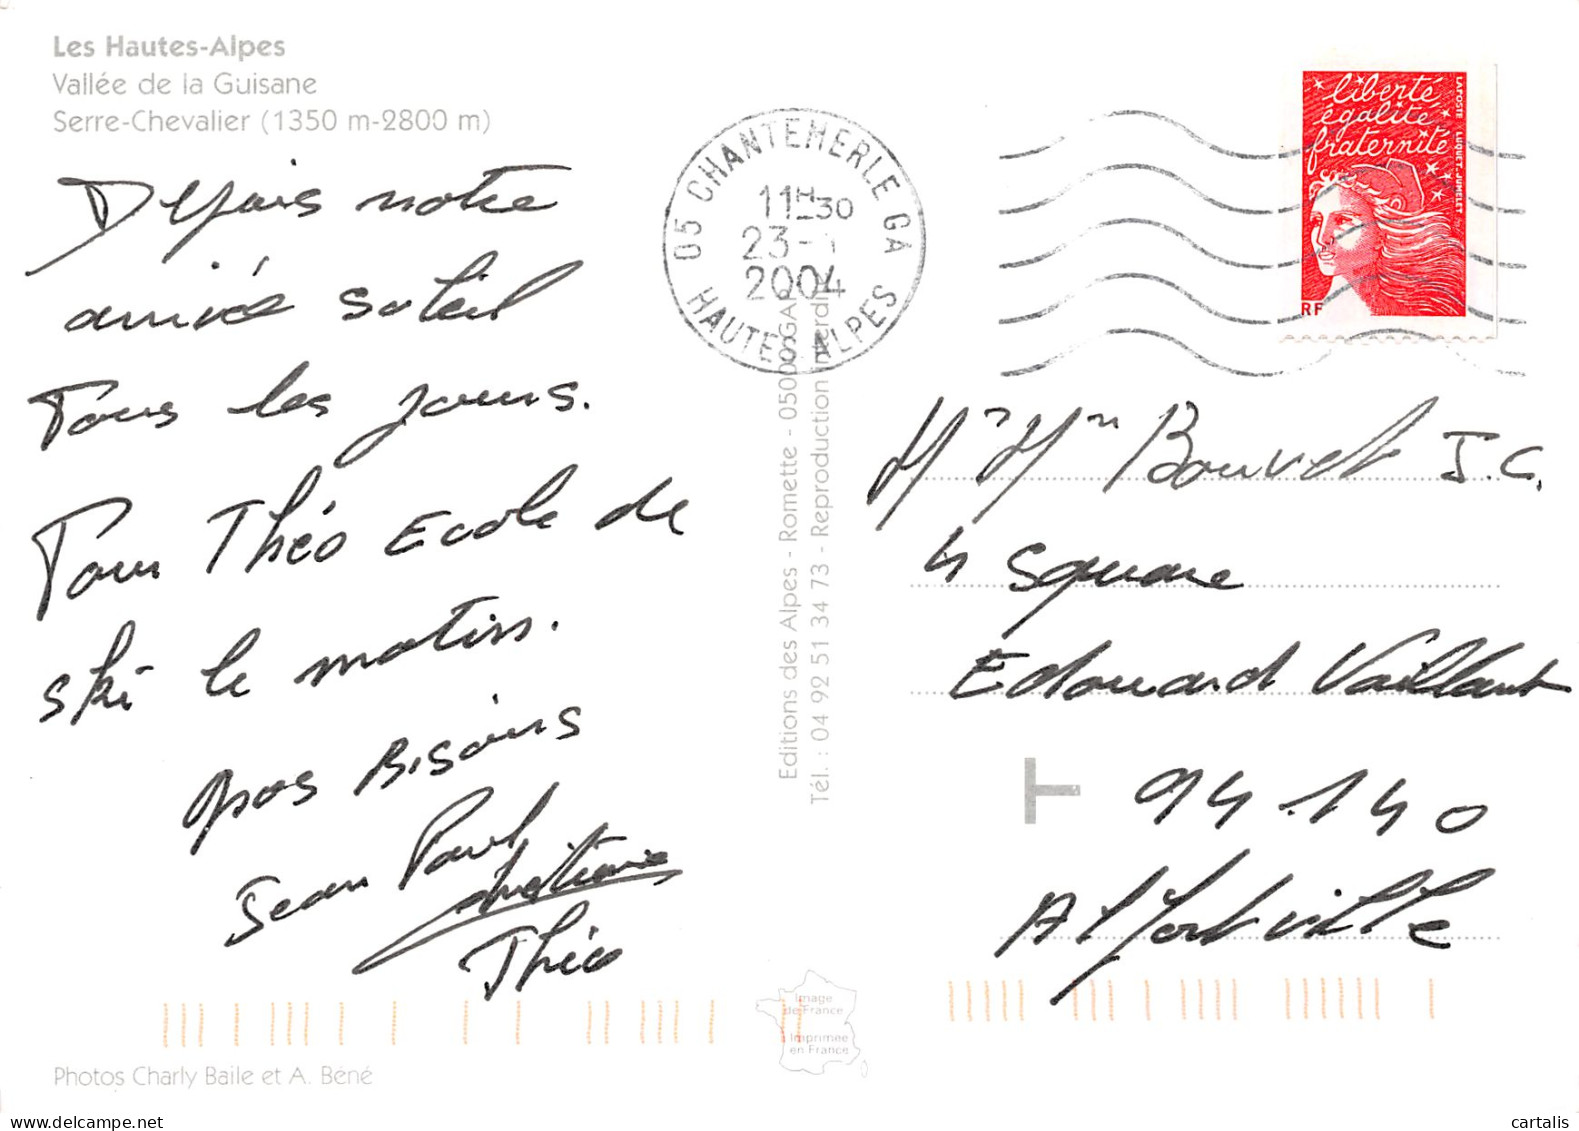 Les Hautes-Alpes
Vallée de la Guisane
Serre-Chevalier (1350 m-2800 m)
Depuis notre
arrivée soleil
Tous les jours.
Pour Théo Ecole de
ski le matin.
gros Bisous
Jean Paul
Théo
Photos Charly Baile et A. Béné
05 CHANTEMERLE GA
11H30
23-
2004
HAUTES ALPES
Editions des Alpes - Romette - 05000 GAP
Tél. : 04 92 51 34 73 - Reproduction interdite
Image
de France
Imprimée
en France
liberté
égalité
fraternité
LA POSTE LUQUET.JUMELET
RF
Mr Mm Bouvet J.C.
4 Square
Edouard Vaillant
94.140
Alfortville
cartalis.com
cartalis